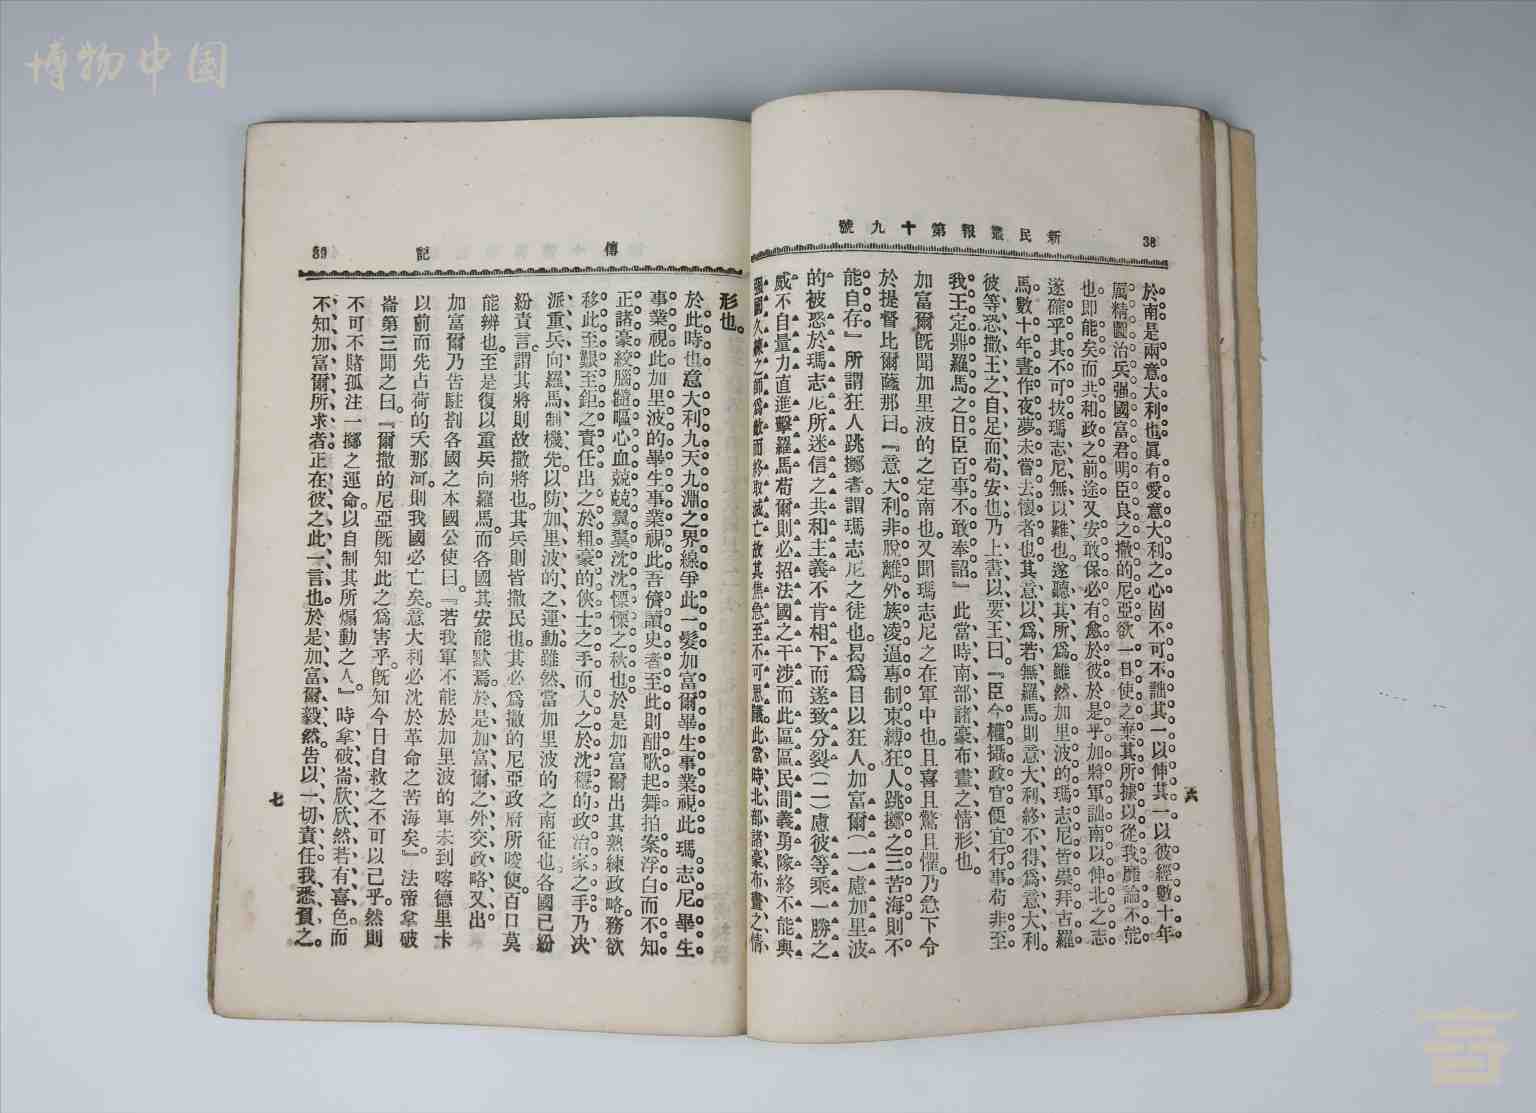 博物中国
新民叢報第十九號
38
於南是兩意大利也眞有愛意大利之心固不可不詘其一以伸其一以彼經數十年
厲精圖治兵强國富君明臣良之撒的尼亞欲一旦使之棄其所據以從我靡論不能
也即能矣而共和政之前途又安敢保必有愈於彼於是乎加將軍詘南以伸北之志
遂確乎其不可拔瑪志尼無以難也遂聽其所爲雖然加里波的瑪志尼皆崇拜古羅
馬數十年晝作夜夢未嘗去懷者也其意以爲若無羅馬則意大利終不得爲意大利
彼等恐撒王之自足而苟安也乃上書以要王曰『臣今權攝政官便宜行事苟非至
我王定鼎羅馬之日臣百事不敢奉詔』此當時南部諸豪布畫之情形也
加富爾旣聞加里波的之定南也又聞瑪志尼之在軍中也且喜且驚且懼乃急下令
於提督比爾薩那曰『意大利非脫離外族凌逼專制束縛狂人跳擲之三苦海則不
能自存』所謂狂人跳擲者謂瑪志尼之徒也曷爲目以狂人加富爾（一）慮加里波
的被惑於瑪志尼所迷信之共和主義不肯相下而遂致分裂（二）慮彼等乘一勝之
威不自量力直進擊羅馬苟爾則必招法國之干涉而此區區民間義勇隊終不能與
强國久練之師爲敵而終取滅亡故其焦急至不可思議此當時北部諸豪布畫之情
六
傳記
39
形也
於此時也意大利九天九淵之界線爭此一髮加富爾畢生事業視此瑪志尼畢生
事業視此加里波的畢生事業視此吾儕讀史者至此則酣歌起舞拍案浮白而不知
正諸豪絞腦髓嘔心血兢兢翼翼沈沈慄慄之秋也於是加富爾出其熟練政略務欲
移此至艱至鉅之責任出之於粗豪的俠士之手而入之於沈穩的政治家之手乃決
派重兵向羅馬制機先以防加里波的之運動雖然當加里波的之南征也各國已紛
紛責言謂其將則故撒將也其兵則皆撒民也其必爲撒的尼亞政府所唆使百口莫
能辨也至是復以重兵向羅馬而各國其安能默焉於是加富爾之外交政略又出
加富爾乃告駐剳各國之本國公使曰『若我軍不能於加里波的軍未到喀德里卡
以前而先占荷的天那河則我國必亡矣意大利必沈於革命之苦海矣』法帝拿破
崙第三聞之曰『爾撒的尼亞旣知此之爲害乎旣知今日自救之不可以已乎然則
不可不賭孤注一擲之運命以自制其所煽動之人』時拿破崙欣欣然若有喜色而
不知加富爾所求者正在彼之此一言也於是加富爾毅然告以一切責任我悉負之
七